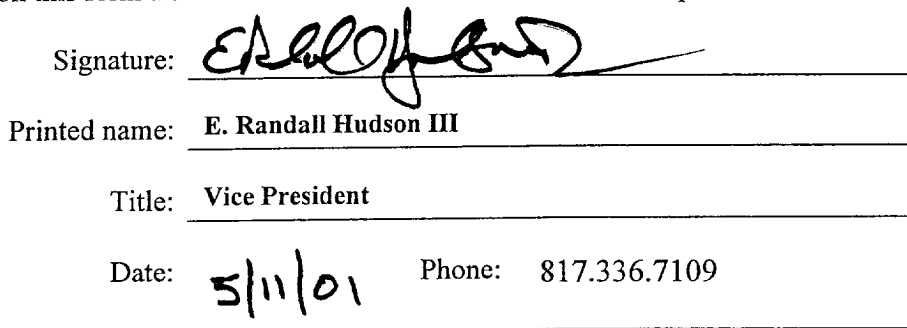 Signature:
Printed name: E. Randall Hudson III
Title: Vice President
Date: 5/11/01 Phone: 817.336.7109